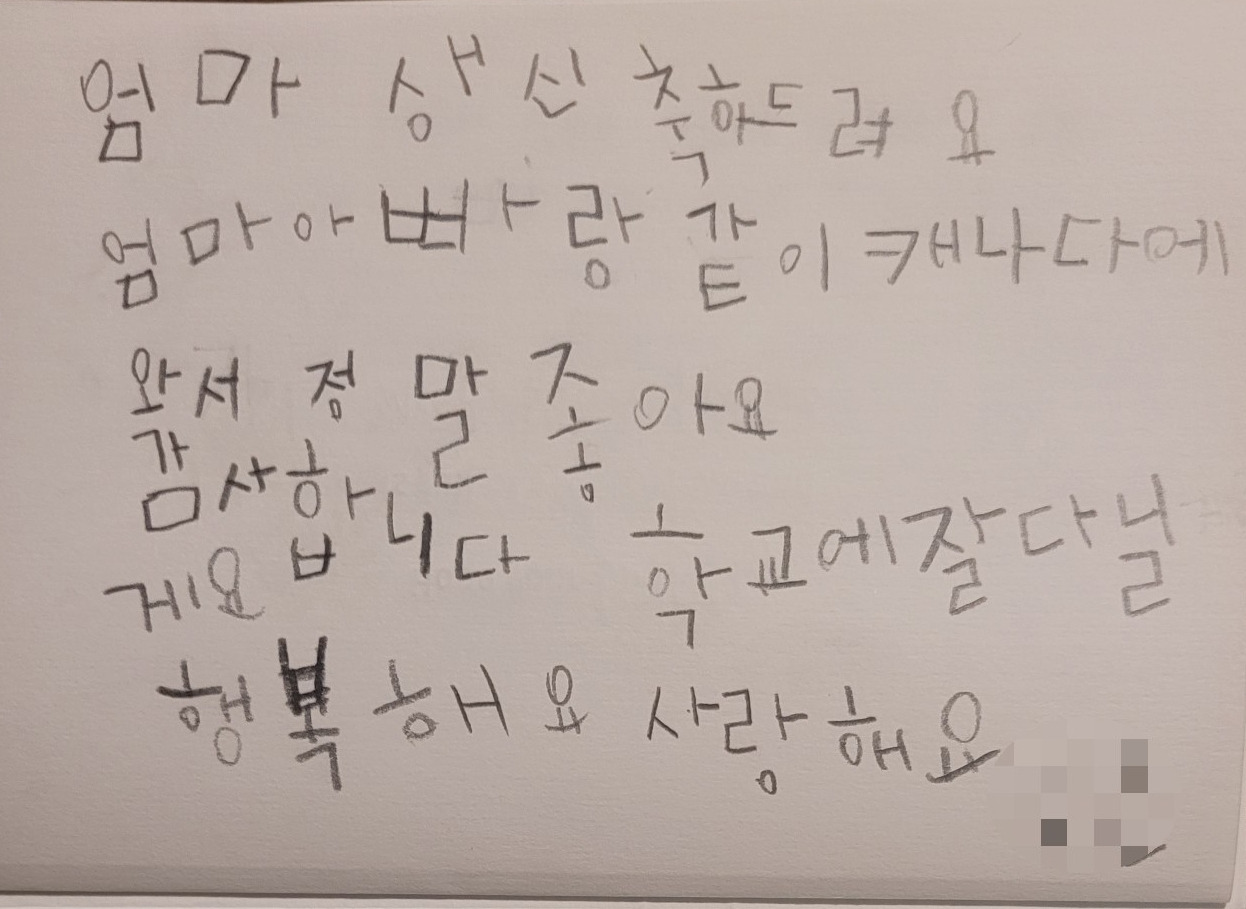 엄마 생신 축하드려요
엄마아빠랑 같이 캐나다에
와서 정말 좋아요
감사합니다 학교에잘다닐
게요
행복해요 사랑해요